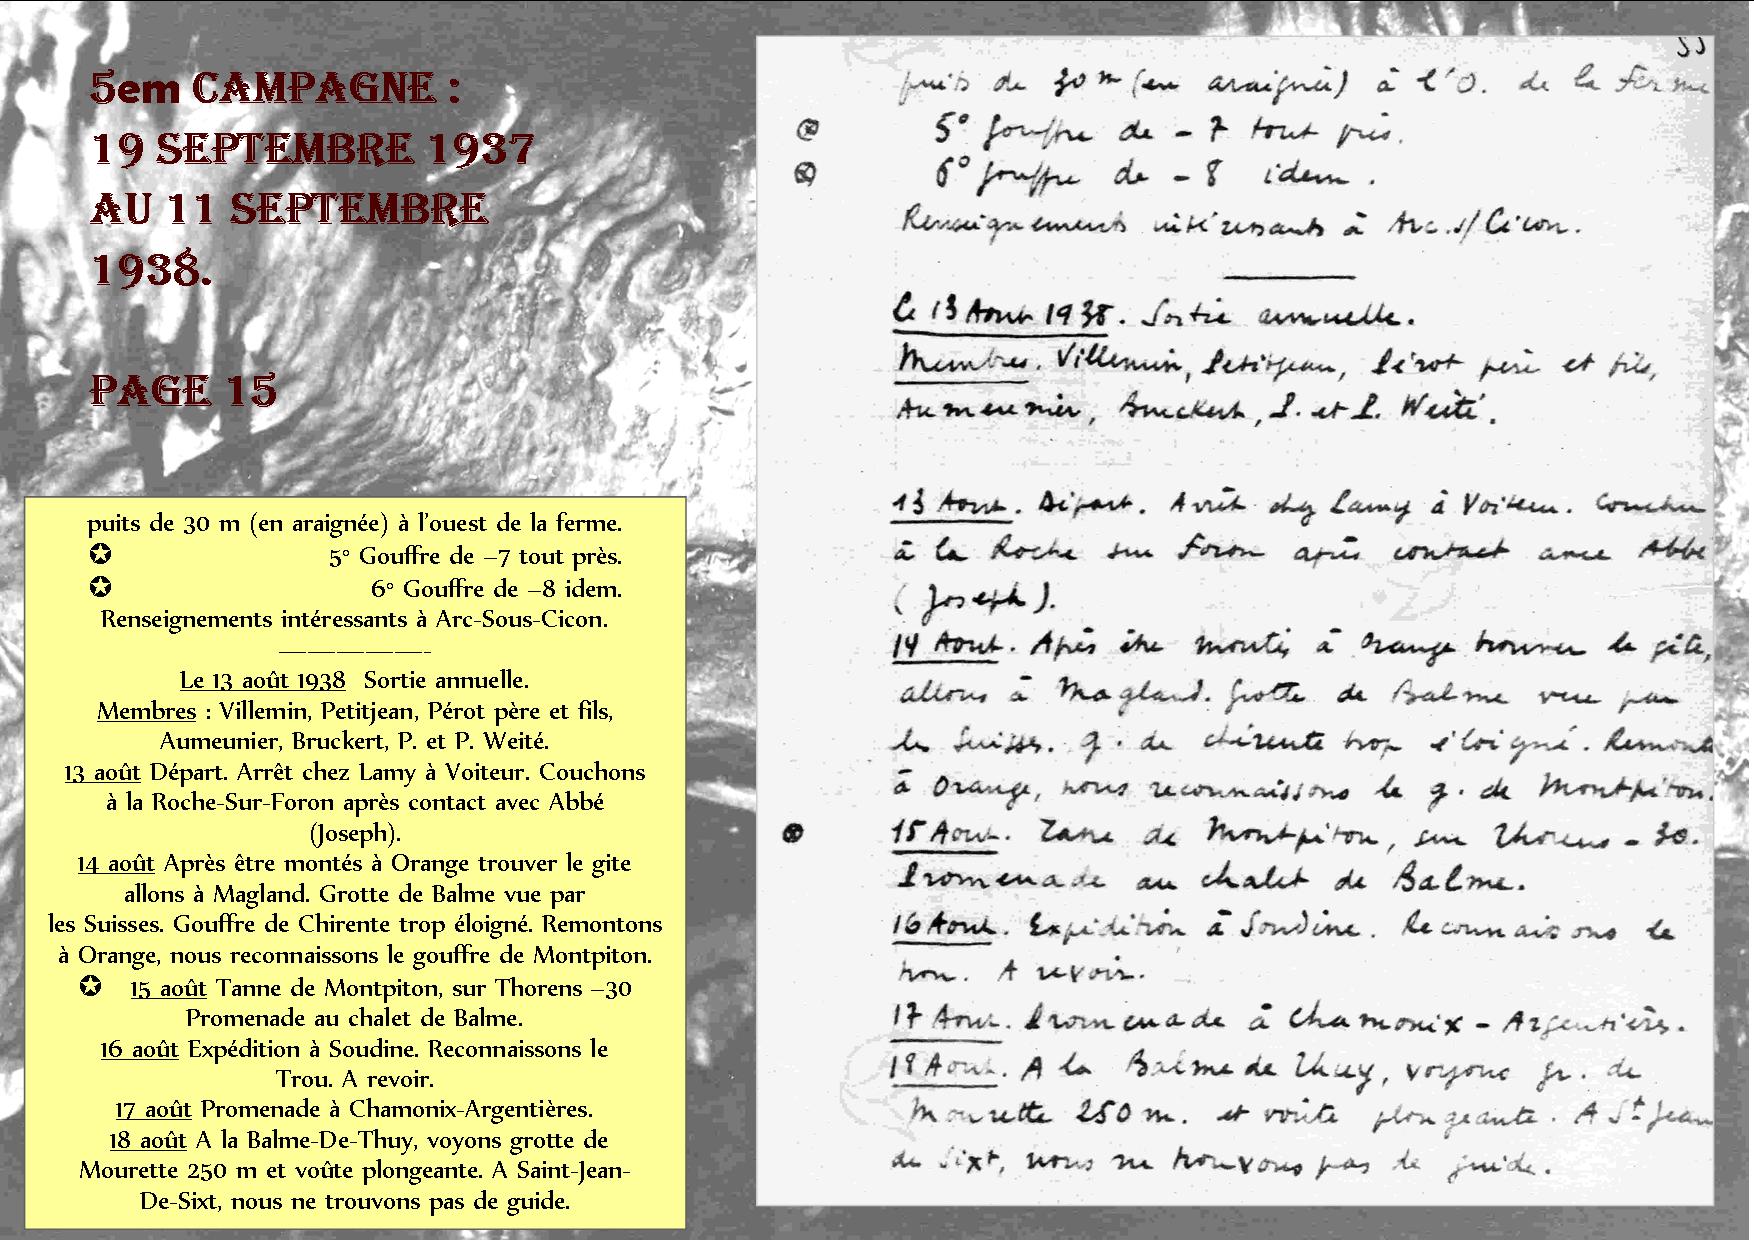 5em CAMPAGNE :
19 SEPTEMBRE 1937
AU 11 SEPTEMBRE
1938.
PAGE 15
puits de 30 m (en araignée) à l'ouest de la ferme.
✪ 5° Gouffre de –7 tout près.
✪ 6° Gouffre de –8 idem.
Renseignements intéressants à Arc-Sous-Cicon.
Le 13 août 1938 Sortie annuelle.
Membres : Villemin, Petitjean, Pérot père et fils,
Aumeunier, Bruckert, P. et P. Weité.
13 août Départ. Arrêt chez Lamy à Voiteur. Couchons
à la Roche-Sur-Foron après contact avec Abbé
(Joseph).
14 août Après être montés à Orange trouver le gite
allons à Magland. Grotte de Balme vue par
les Suisses. Gouffre de Chirente trop éloigné. Remontons
à Orange, nous reconnaissons le gouffre de Montpiton.
✪ 15 août Tanne de Montpiton, sur Thorens –30
Promenade au chalet de Balme.
16 août Expédition à Soudine. Reconnaissons le
Trou. A revoir.
17 août Promenade à Chamonix-Argentières.
18 août A la Balme-De-Thuy, voyons grotte de
Mourette 250 m et voûte plongeante. A Saint-Jean-
De-Sixt, nous ne trouvons pas de guide.
puits de 30 m (en araignée) à l'O. de la ferme
5° gouffre de – 7 tout près.
6° gouffre de – 8 idem.
Renseignements intéressants à Arc.s/Cicon.
Le 13 Aout 1938. Sortie annuelle.
Membres. Villemin, Petitjean, Pérot père et fils,
Aumeunier, Bruckert, P. et P. Weité.
13 Aout. Départ. Arrêt chez Lamy à Voiteur. Couchons
à la Roche sur Foron après contact avec Abbé
(Joseph).
14 Aout. Après être montés à Orange trouver le gîte,
allons à Magland. Grotte de Balme vue par
les Suisses. g. de chirente trop éloigné. Remont
à Orange, nous reconnaissons le g. de Montpiton.
15 Aout. Tane de Montpiton, sur Thorens – 30.
Promenade au chalet de Balme.
16 Aout. Expédition à Soudine. Reconnaissons le
trou. A revoir.
17 Aout. Promenade à Chamonix – Argentières.
18 Aout. A la Balme de Thuy, voyons gr. de
Mourette 250 m. et voûte plongeante. A St Jean
de Sixt, nous ne trouvons pas de guide.